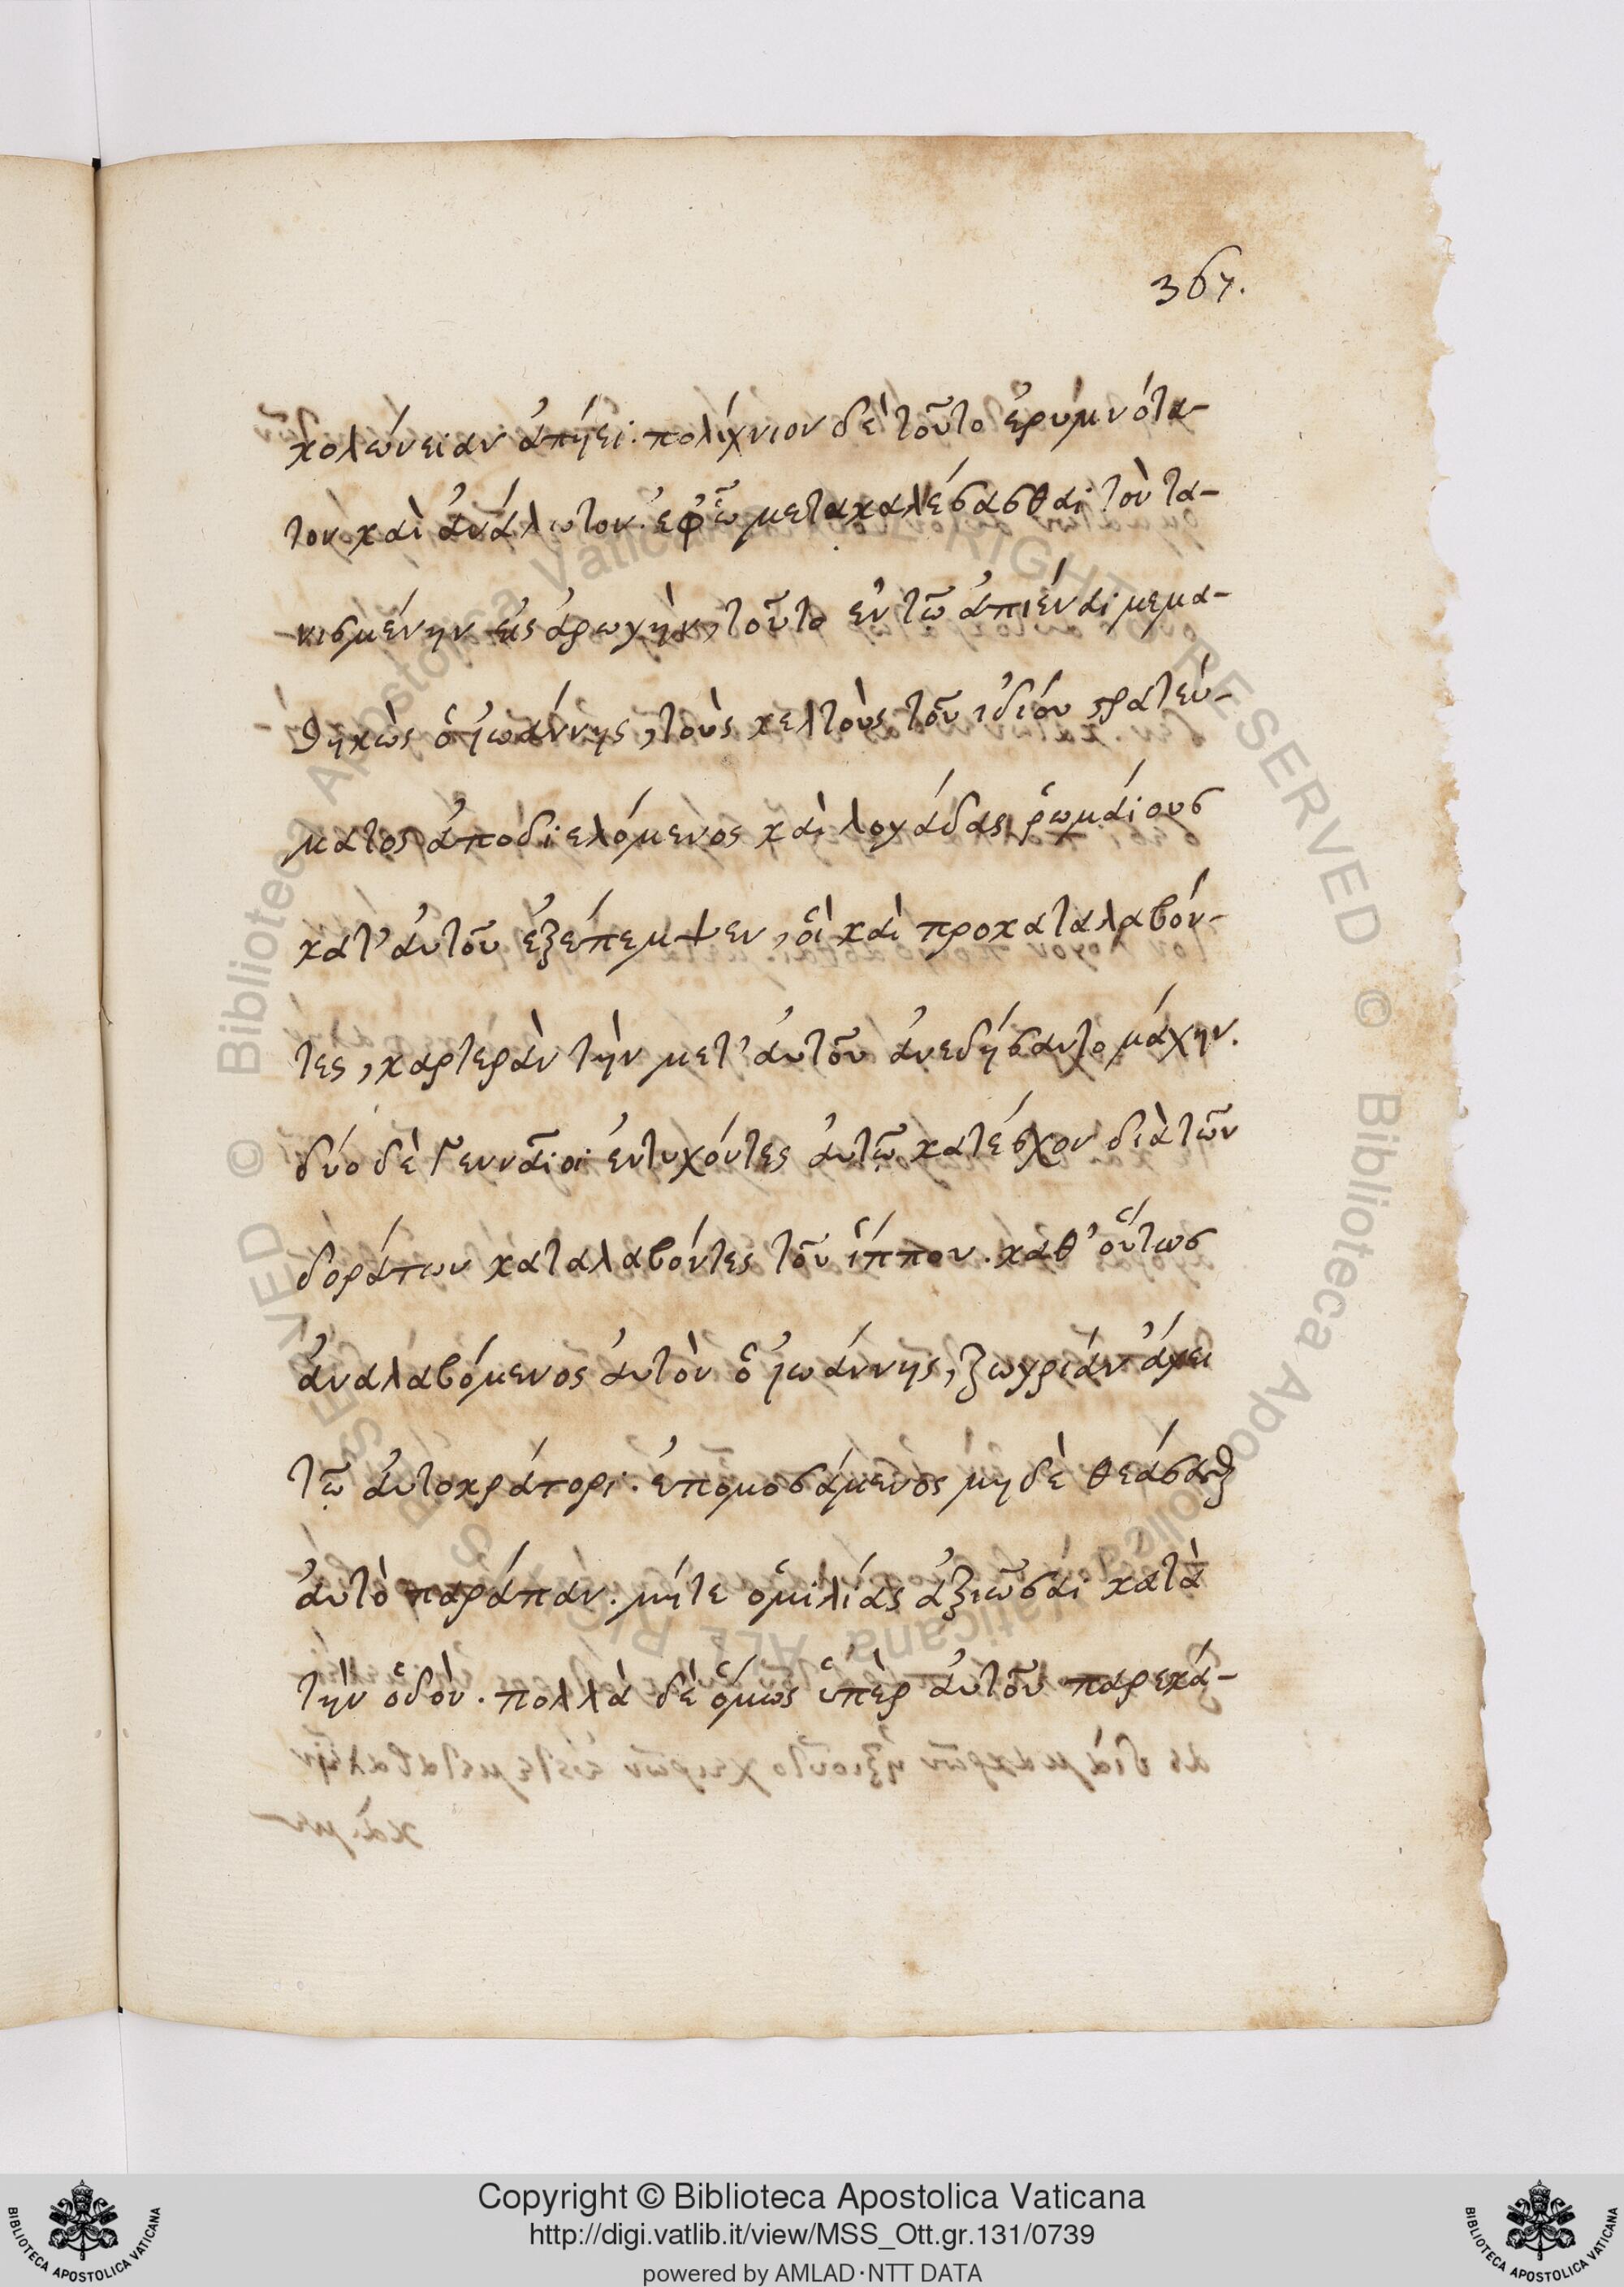 367.
κολώνειαν ἀπήει· πολίχνιον δὲ τοῦτο ἐρυμνότα-
τον καὶ ἀνάλωτον· ἐφ' ᾧ μετακαλέσασθαι τὸν τα-
νισμένην εἰς ἀρωγὴν, τοῦτο ἐν τῶ ἀπιέναι μεμα-
θηκὼς ὁ ἰωάννης, τοὺς κελτοὺς τοῦ ἰδίου στρατεύ-
ματος ἀποδιελόμενος καὶ λογάδας ῥωμαίους
κατ' αὐτοῦ ἐξέπεμψεν, οἳ καὶ προκαταλαβόν-
τες, καρτερὰν τὴν μετ' αὐτοῦ ἀνεδήσαντο μάχην.
δύο δὲ γενναῖοι ἐντυχόντες αὐτῷ κατέσχον διὰ τῶν
δοράτων καταλαβόντες τὸν ἵππον. καθ' οὕτως
ἀναλαβόμενος αὐτὸν ὁ ἰωάννης, ζωγρίαν ἄγει
τῷ αὐτοκράτορι· ἐπομοσάμενος μηδὲ θεάσασθαι
αὐτὸ παράπαν. μήτε ὁμιλίας ἀξιῶσαι κατὰ
τὴν ὁδὸν. πολλὰ δὲ ὅμως ὑπὲρ αὐτοῦ παρεκά-
© Biblioteca Apostolica Vaticana ALL RIGHTS RESERVED
Copyright © Biblioteca Apostolica Vaticana
http://digi.vatlib.it/view/MSS_Ott.gr.131/0739
powered by AMLAD·NTT DATA
BIBLIOTECA APOSTOLICA VATICANA
BIBLIOTECA APOSTOLICA VATICANA